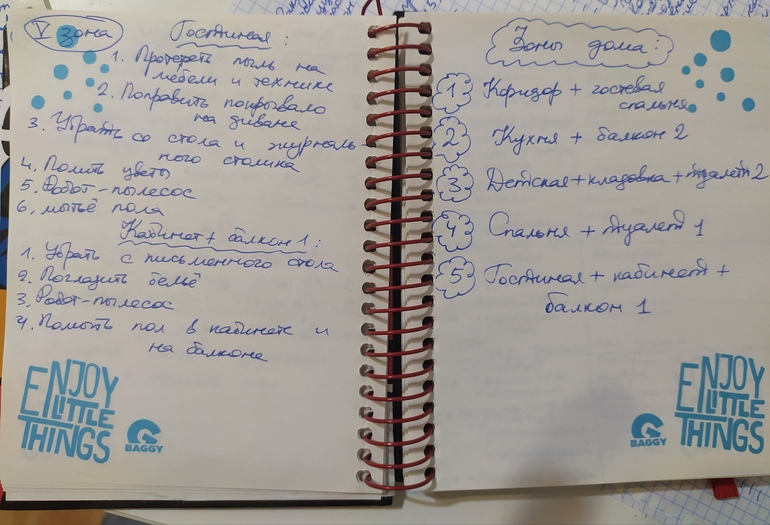 V Зона
Гостиная:
1. Протереть пыль на
мебели и технике
2. Поправить покрывало
на диване
3. Убрать со стола и журналь-
ного столика
4. Полить цветы
5. Робот-пылесос
6. мытьё пола
Кабинет + балкон 1:
1. Убрать с письменного стола
2. Погладить бельё
3. Робот-пылесос
4. Помыть пол в кабинете и
на балконе
ENJOY
LITTLE
THINGS
BAGGY
Зоны дома:
1 Коридор + гостевая
спальня
2 Кухня + балкон 2
3 Детская + кладовка + туалет 2
4 Спальня + туалет 1
5 Гостиная + кабинет +
балкон 1
BAGGY
ENJOY
LITTLE
THINGS